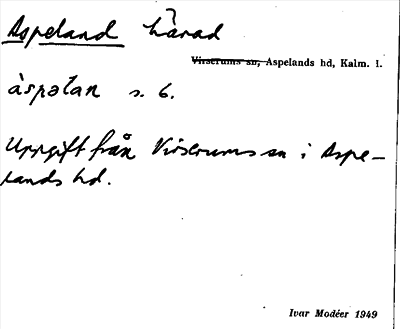 Aspeland härad
Virserums sn, Aspelands hd, Kalm. l.
àspəlan s. 6.
Uppgift från Virserums sn i Aspe-
lands hd.
Ivar Modéer 1949